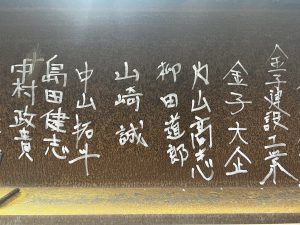 金子建設工業
金子大企
丸山高志
柳田道郎
山崎誠
中山拓斗
島田健志
中村政貴